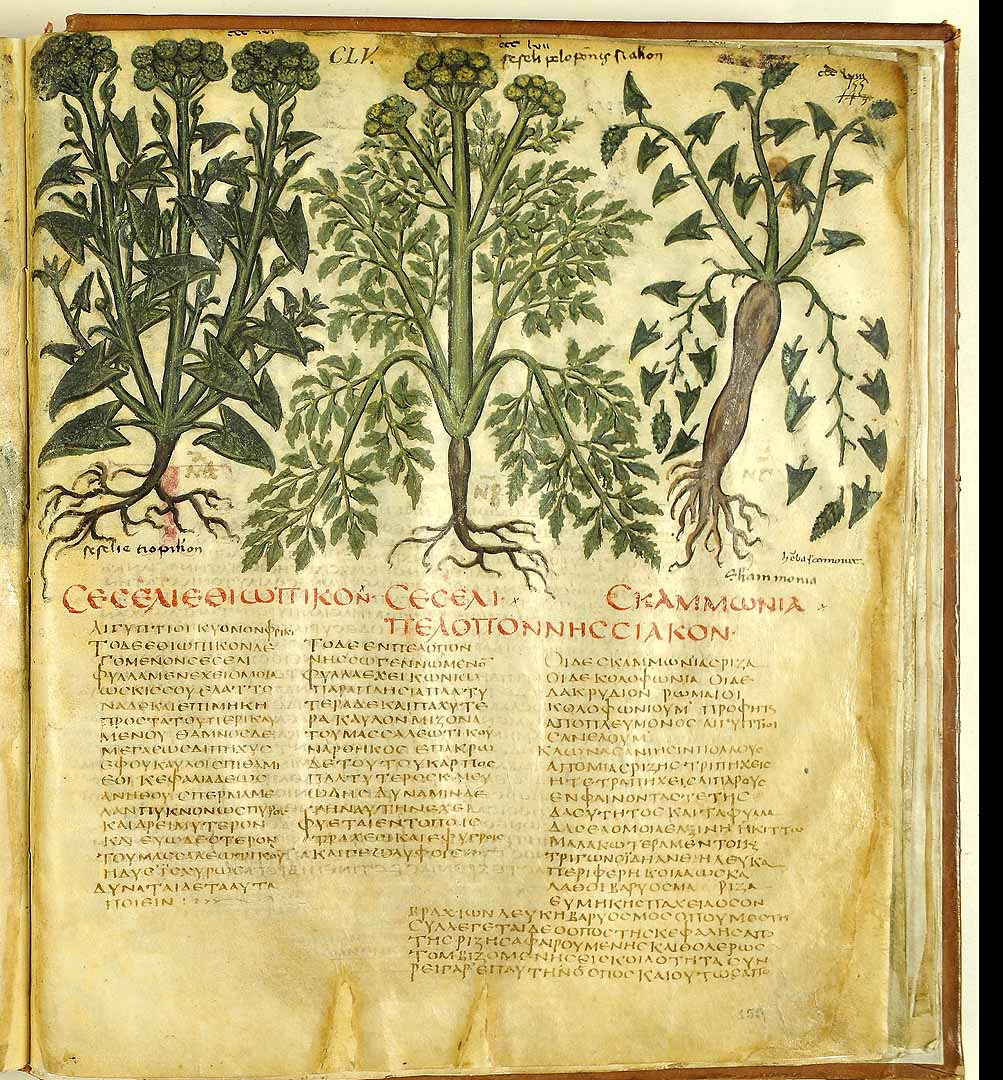 CLV.
ccc lvii
seseli peloponisiakon
ccc lviii
155
seseli etiopikon
herba scamonea
Skammonia
ϹΕϹΕΛΙΕΘΙΩΠΙΚΟΝ·
ΑΙΓΥΠΤΙΟΙΚΥΟΝΟΝΦΡΙΚΙ
ΤΟΔΕΕΘΙΩΠΙΚΟΝΛΕ
ΓΟΜΕΝΟΝϹΕϹΕΛΙ
ΦΥΛΛΑΜΕΝΕΧΕΙΟΜΟΙΑ
ΩϹΚΙϹϹΟΥΕΛΑΤΤΟ
ΝΑΔΕΚΑΙΕΠΙΜΗΚΗ
ΠΡΟϹΤΑΤΟΥΠΕΡΙΚΛΥ
ΜΕΝΟΥΘΑΜΝΟϹΔΕ
ΜΕΓΑϹΩϹΔΙΠΗΧΥϹ
ΕΦΟΥΚΑΥΛΟΙϹΠΙΘΑΜΙ
ΕΟΙΚΕΦΑΛΙΑΔΕΩϹ
ΑΝΗΘΟΥϹΠΕΡΜΑΜΕ
ΛΑΝΠΥΚΝΟΝΩϹΠΥΡΟΥ
ΚΑΙΔΡΕΙΜΥΤΕΡΟΝ
ΚΑΙΕΥΩΔΕϹΤΕΡΟΝ
ΤΟΥΜΑϹϹΑΛΕΩΤΙΚΟΥ
ΗΔΥϹΙϹΧΥΡΩϹ
ΔΥΝΑΤΑΙΔΕΤΑΑΥΤΑ
ΠΟΙΕΙΝ
ϹΕϹΕΛΙ·
ΠΕΛΟΠΟΝΝΗϹϹΙΑΚΟΝ·
ΤΟΔΕΕΝΠΕΛΟΠΟΝ
ΝΗϹϹΩΓΕΝΝΩΜΕΝΟ
ΦΥΛΛΑΕΧΕΙΚΩΝΙΩ
ΠΑΡΑΠΛΗϹΙΑΠΛΑΤΥ
ΤΕΡΑΔΕΚΑΙΠΑΧΥΤΕ
ΡΑΚΑΥΛΟΝΜΙΖΟΝΑ
ΤΟΥΜΑϹϹΑΛΕΩΤΙΚΟΥ
ΝΑΡΘΗΚΟϹΕΠΑΚΡΩ
ΔΕΤΟΥΤΟΥΚΑΡΠΟϹ
ΠΛΑΤΥΤΕΡΟϹΚΑΙΕΥ
ΩΔΗϹΔΥΝΑΜΙΝΔΕ
ΤΗΝΑΥΤΗΝΕΧΕΙ
ΦΥΕΤΑΙΕΝΤΟΠΟΙϹ
ΤΡΑΧΕϹΙΚΑΙΕΦΥΓΡΟΙϹ
ϹΚΑΜΜΩΝΙΑ
ΟΙΔΕϹΚΑΜΜΩΝΙΑϹΡΙΖΑ
ΟΙΔΕΚΟΛΟΦΩΝΙΑ ΟΙΔΕ
ΛΑΚΡΥΔΙΟΝ ΡΩΜΑΙΟΙ
ΚΟΛΟΦΩΝΙΟΥΜ ΠΡΟΦΗΤ
ΑΠΟΠΛΕΥΜΟΝΟϹ ΑΙΓΥΠΤΙΟΙ
ϹΑΝΕΛΟΥΜ
ΚΛΩΝΑϹΑΝΙΗϹΙΝΠΟΛΛΟΥϹ
ΑΠΟΜΙΑϹΡΙΖΗϹΤΡΙΠΗΧΕΙϹ
ΗΤΕΤΡΑΠΗΧΕΙϹΛΙΠΑΡΟΥϹ
ΕΝΦΑΙΝΟΝΤΑϹΤΕΤΗϹ
ΔΑϹΥΤΗΤΟϹΚΑΙΤΑΦΥΛΛΑ
ΜΑΛΑΚΩΤΕΡΑΜΕΝΤΟΙΚ
ΤΡΙΓΩΝΟΙΔΗΑΝΘΗΛΕΥΚΑ
ΠΕΡΙΦΕΡΗΚΟΙΛΑΩϹΚΑ
ΛΑΘΟΙΒΑΡΥΟϹΜΑ ΡΙΖΑ
ΕΥΜΗΚΗϹΠΑΧΕΙΑΟϹΟΝ
ΒΡΑΧΙΩΝΛΕΥΚΗΒΑΡΥΟϹΜΟϹΟΠΟΥΜΕϹΤΗ
ϹΥΛΛΕΓΕΤΑΙΔΕΟΟΠΟϹΤΗϹΚΕΦΑΛΗϹΑΠΟ
ΤΗϹΡΙΖΗϹΑΦΑΙΡΟΥΜΕΝΗϹΚΑΙΘΟΛΕΡΩϹ
ΤΟΜΒΙΖΟΜΕΝΗϹΕΙϹΚΟΙΛΟΤΗΤΑϹΥΝ
ΡΕΙΓΑΡΕΠΑΥΤΗΝΟΟΠΟϹΚΑΙΟΥΤΩϹΑΠΟ
155